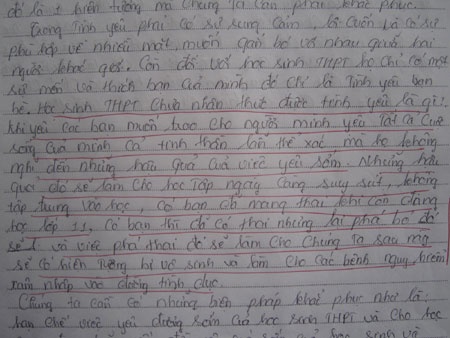 đó là 1 hiện tượng mà chúng ta cần phải khắc phục.
Trong tình yêu phải có sự rung cảm, lôi cuốn và có sự
phù hợp về nhiều mặt, muốn gắn bó với nhau giữa hai
người khác giới. Còn đối với học sinh THPT họ chỉ có một
sự mến và thích bạn của mình đó chỉ là tình yêu bạn
bè. Học sinh THPT chưa nhận thức được tình yêu là gì.
khi yêu các bạn muốn trao cho người mình yêu tất cả cuộc
sống của mình cả tinh thần lẫn thể xác mà họ không
nghĩ đến những hậu quả của việc yêu sớm. Những hậu
quả đó sẽ làm cho học tập ngày càng suy sút, không
tập trung vào học, có bạn đã mang thai khi còn đang
học lớp 11, có bạn thì đã có thai nhưng lại phá bỏ đó
và việc phá thai đó sẽ làm cho chúng ta sau này
sẽ có hiện tượng bị vô sinh và làm cho các bệnh nguy hiểm
xâm nhập vào đường tình dục.
Chúng ta cần có những biện pháp khắc phục như là:
hạn chế việc yêu đương sớm của học sinh THPT và cho học
học sinh và